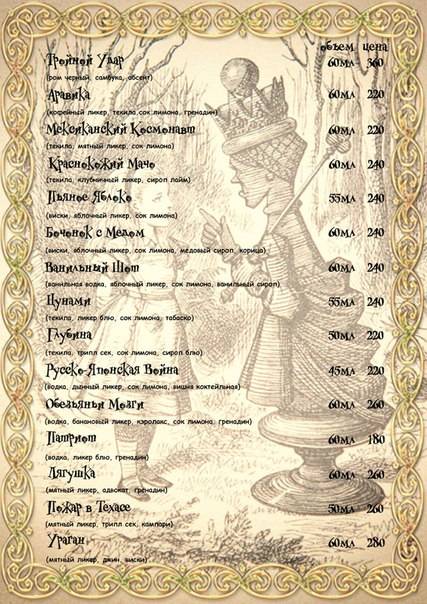 объем цена
Тройной Удар 60мл 360
(ром черный, самбука, абсент)
Аравика 60мл 220
(кофейный ликер, текила, сок лимона, гренадин)
Мексиканский Космонавт 60мл 220
(текила, мятный ликер, сок лимона)
Краснокожий Мачо 60мл 240
(текила, клубничный ликер, сироп лайм)
Пьяное Яблоко 55мл 240
(виски, яблочный ликер, сок лимона)
Бочонок с Медом 60мл 240
(виски, яблочный ликер, сок лимона, медовый сироп, корица)
Ванильный Шот 60мл 240
(ванильная водка, яблочный ликер, сок лимона, ванильный сироп)
Цунами 55мл 240
(текила, ликер блю, сок лимона, табаско)
Глубина 50мл 220
(текила, трипл сек, сок лимона, сироп блю)
Русско-Японская Война 45мл 220
(водка, дынный ликер, сок лимона, вишня коктейльная)
Обезьяньи Мозги 60мл 260
(водка, банановый ликер, кэролакс, сок лимона, гренадин)
Патриот 60мл 180
(водка, ликер блю, гренадин)
Лягушка 60мл 260
(мятный ликер, адвокат, гренадин)
Пожар в Техасе 50мл 260
(мятный ликер, трипл сек, кампари)
Ураган 60мл 280
(мятный ликер, джин, виски)